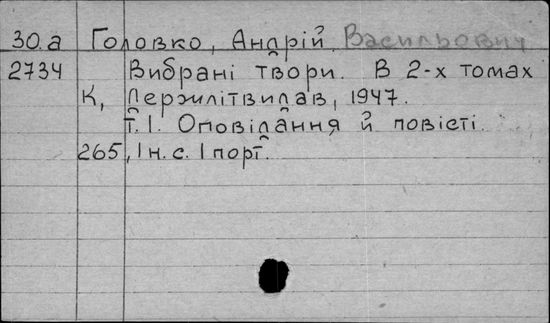 30.а Головко, Андрій Васильович
2734 Вибрані твори. В 2-х томах
К, Держлітвидав, 1947.
т. 1. Оповідання й повісті.
265, 1 н. с. 1 порт.